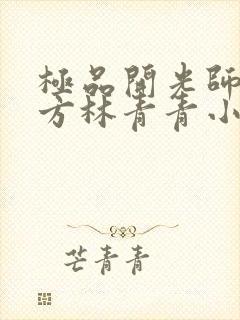 極品開光師
方林青青小
芒青青